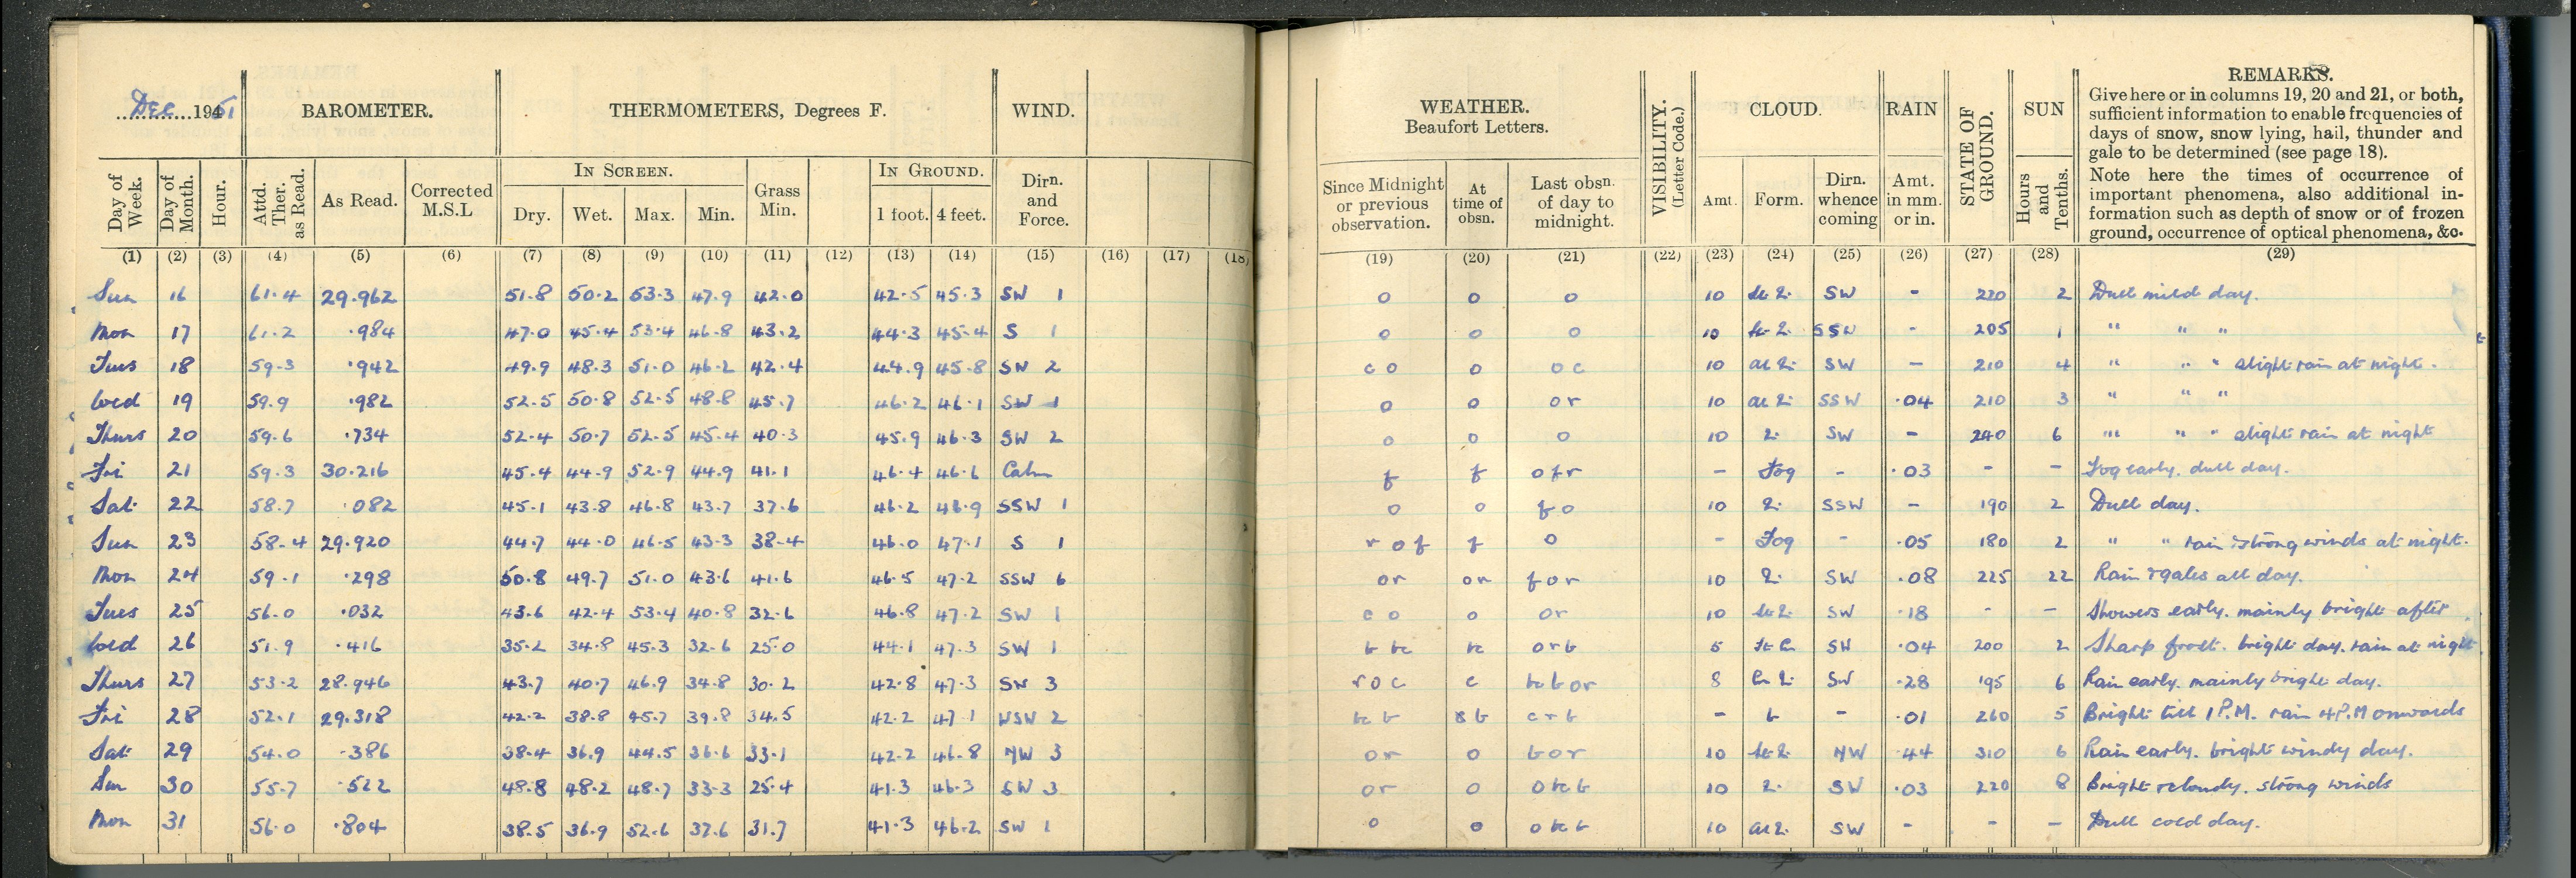 Dec 1951 BAROMETER. THERMOMETERS, Degrees F. WIND. WEATHER. Beaufort Letters. VISIBILITY. (Letter Code.) CLOUD. RAIN STATE OF GROUND. SUN REMARKS.
Give here or in columns 19, 20 and 21, or both,
sufficient information to enable frequencies of
days of snow, snow lying, hail, thunder and
gale to be determined (see page 18).
Note here the times of occurrence of
important phenomena, also additional in-
formation such as depth of snow or of frozen
ground, occurrence of optical phenomena, &c.
Day of Week. Day of Month. Hour. Attd. Ther. as Read. As Read. Corrected M.S.L IN SCREEN. Dry. Wet. Max. Min. Grass Min. IN GROUND. 1 foot. 4 feet. Dirn. and Force. Since Midnight or previous observation. At time of obsn. Last obsn. of day to midnight. Amt. Form. Dirn. whence coming Amt. in mm. or in. Hours and Tenths.
(1) (2) (3) (4) (5) (6) (7) (8) (9) (10) (11) (12) (13) (14) (15) (16) (17) (18) (19) (20) (21) (22) (23) (24) (25) (26) (27) (28) (29)
Sun 16 61.4 29.962 51.8 50.2 53.3 47.9 42.0 42.5 45.3 SW 1 o o o 10 SW - 220 2 Dull mild day.
Mon 17 61.2 .984 47.0 45.4 53.4 46.8 43.2 44.3 45.4 S 1 o o o 10 SSW - 205 1 " " "
Tues 18 59.3 .942 49.9 48.3 51.0 46.2 42.4 44.9 45.8 SW 2 c o o o c 10 SW - 210 4 " " " slight rain at night.
Wed 19 59.9 .982 52.5 50.8 52.5 48.8 45.7 46.2 46.1 SW 1 o o o r 10 SSW .04 210 3 " " "
Thurs 20 59.6 .734 52.4 50.7 52.5 45.4 40.3 45.9 46.3 SW 2 o o o 10 SW - 240 6 " " " slight rain at night
Fri 21 59.3 30.216 45.4 44.9 52.9 44.9 41.1 46.4 46.6 Calm f f o f r - Fog - .03 - - Fog early. dull day.
Sat 22 58.7 .082 45.1 43.8 46.8 43.7 37.6 46.2 46.9 SSW 1 o o f o 10 SSW - 190 2 Dull day.
Sun 23 58.4 29.920 44.7 44.0 46.5 43.3 38.4 46.0 47.1 S 1 r o f f o - Fog - .05 180 2 " " rain & strong winds at night.
Mon 24 59.1 .298 50.8 49.7 51.0 43.6 41.6 46.5 47.2 SSW 6 o r o r f o r 10 SW .08 225 22 Rain & gales all day.
Tues 25 56.0 .032 43.6 42.4 53.4 40.8 32.6 46.8 47.2 SW 1 c o o o r 10 SW .18 - - Showers early. mainly bright after
Wed 26 51.9 .416 35.2 34.8 45.3 32.6 25.0 44.1 47.3 SW 1 b bc bc o r b 5 SW .04 200 2 Sharp frost. bright day. rain at night.
Thurs 27 53.2 28.946 43.7 40.7 46.9 34.8 30.2 42.8 47.3 SW 3 r o c c bc b o r 8 SW .28 195 6 Rain early. mainly bright day.
Fri 28 52.1 29.318 42.2 38.8 45.7 39.8 34.5 42.2 47.1 WSW 2 bc b b c r b - b - .01 260 5 Bright till 1 P.M. rain 4 P.M onwards
Sat 29 54.0 .386 38.4 36.9 44.5 36.6 33.1 42.2 46.8 NW 3 o r o b o r 10 NW .44 310 6 Rain early. bright windy day.
Sun 30 55.7 .522 48.8 48.2 48.7 33.3 25.4 41.3 46.3 SW 3 o r o o bc b 10 SW .03 220 8 Bright & cloudy. strong winds
Mon 31 56.0 .804 38.5 36.9 52.6 37.6 31.7 41.3 46.2 SW 1 o o o bc b 10 SW - - - Dull cold day.